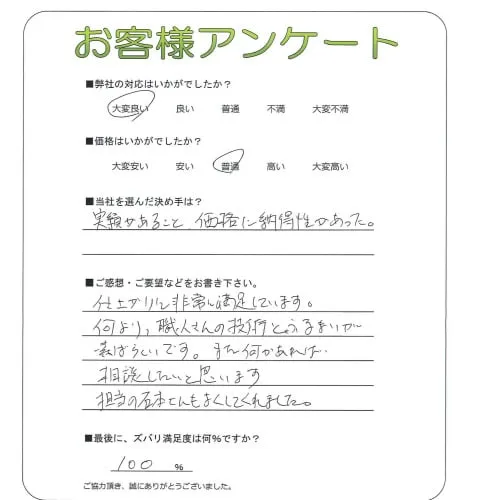 お客様アンケート
■弊社の対応はいかがでしたか？
大変良い 良い 普通 不満 大変不満
■価格はいかがでしたか？
大変安い 安い 普通 高い 大変高い
■当社を選んだ決め手は？
実績があること、価格に納得性があった。
■ご感想・ご要望などをお書き下さい。
仕上がりに非常に満足しています。
何より、職人さんの技術とふるまいが
素ばらしいです。また何かあれば
相談したいと思います
担当の石本さんもよくしてくれました。
■最後に、ズバリ満足度は何%ですか？
100 %
ご協力頂き、誠にありがとうございました。